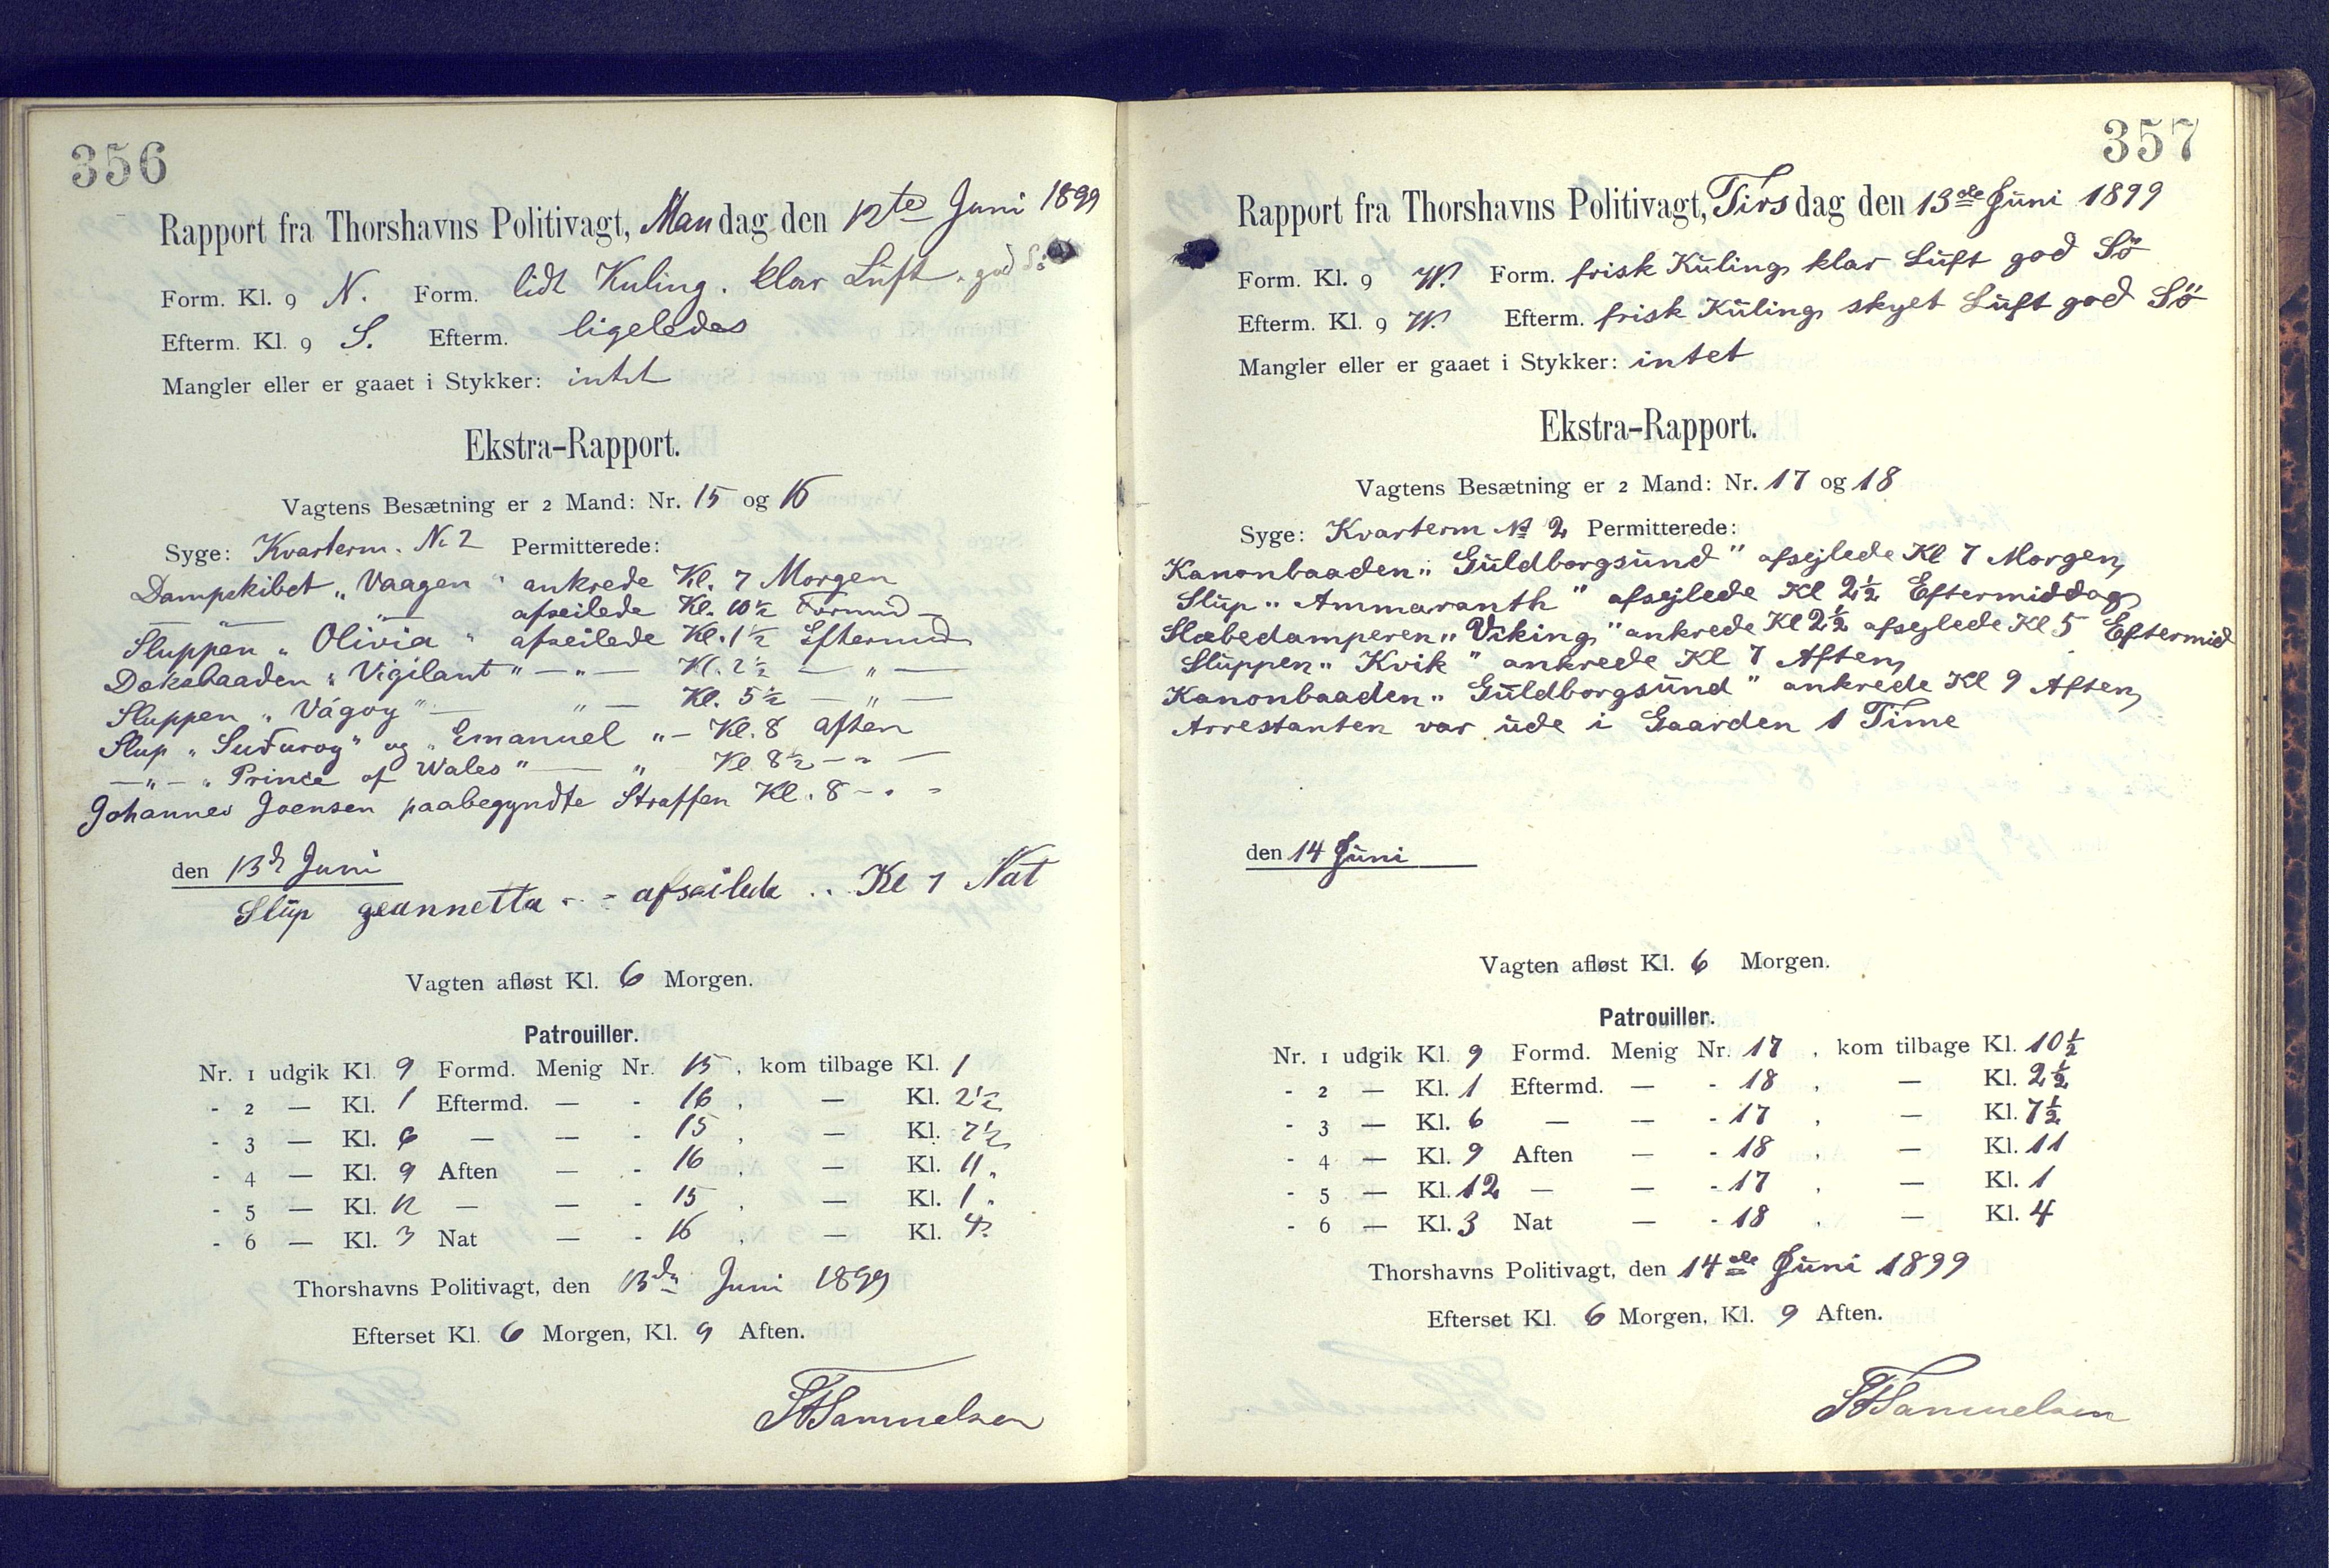 356
Rapport fra Thorshavns Politivagt, Mandag den 12te Juni 1899
Form. Kl. 9 N. Form. lidt Kuling. klar Luft. god Sø
Efterm. Kl. 9 S. Efterm. ligeledes
Mangler eller er gaaet i Stykker: intet
Ekstra-Rapport.
Vagtens Besætning er 2 Mand: Nr. 15 og 16
Syge: Kvarterm. No 2 Permitterede:
Dampskibet „Vaagen" ankrede Kl. 7 Morgen
— „ — „ afseilede Kl. 10½ Formid —
Sluppen „Olivia" afseilede Kl. 1½ Eftermid
Doksbaaden „Vigilant" — „ — Kl. 2½ — „ —
Sluppen „Vágoy" — „ — Kl. 5½ — „ —
Slup „Suduroy" og „Emanuel" — Kl. 8 Aften
— „ — „Prince of Wales" — „ Kl 8½ — „ —
Johannes Joensen paabegyndte Straffen Kl. 8 — „ —
den 13de Juni
Slup geannetta - - afseilede .. Kl 1 Nat
Vagten afløst Kl. 6 Morgen.
Patrouiller.
Nr. 1 udgik Kl. 9 Formd. Menig Nr. 15, kom tilbage Kl. 1
- 2 — Kl. 1 Eftermd. — - 16, — Kl. 2½
- 3 — Kl. 6 — — - 15, — Kl. 7½
- 4 — Kl. 9 Aften — - 16, — Kl. 11„
- 5 — Kl. 12 — — - 15, — Kl. 1„
- 6 — Kl. 3 Nat — - 16, — Kl. 4„
Thorshavns Politivagt, den 13de Juni 1899
Efterset Kl. 6 Morgen, Kl. 9 Aften.
Samuelsen
357
Rapport fra Thorshavns Politivagt, Tirsdag den 13de Juni 1899
Form. Kl. 9 W. Form. frisk Kuling klar Luft god Sö
Efterm. Kl. 9 W. Efterm. frisk Kuling skyet Luft god Sö
Mangler eller er gaaet i Stykker: intet
Ekstra-Rapport.
Vagtens Besætning er 2 Mand: Nr. 17 og 18
Syge: Kvarterm No 2 Permitterede:
Kanonbaaden „Guldborgsund" afsejlede Kl 7 Morgen,
Slup „Ammaranth" afsejlede Kl 2½ Eftermiddag
Slæbedamperen „Viking" ankrede Kl 2½ afsejlede Kl 5 Eftermid
Sluppen „Kvik" ankrede Kl 7 Aften,
Kanonbaaden „Guldborgsund" ankrede Kl 9 Aften,
Arrestanten var ude i Gaarden 1 Time
den 14 Juni
Vagten afløst Kl. 6 Morgen.
Patrouiller.
Nr. 1 udgik Kl. 9 Formd. Menig Nr. 17, kom tilbage Kl. 10½
- 2 — Kl. 1 Eftermd. — - 18, — Kl. 2½
- 3 — Kl. 6 — — - 17, — Kl. 7½
- 4 — Kl. 9 Aften — - 18, — Kl. 11
- 5 — Kl. 12 — — - 17, — Kl. 1
- 6 — Kl. 3 Nat — - 18, — Kl. 4
Thorshavns Politivagt, den 14de Juni 1899
Efterset Kl. 6 Morgen, Kl. 9 Aften.
Samuelsen